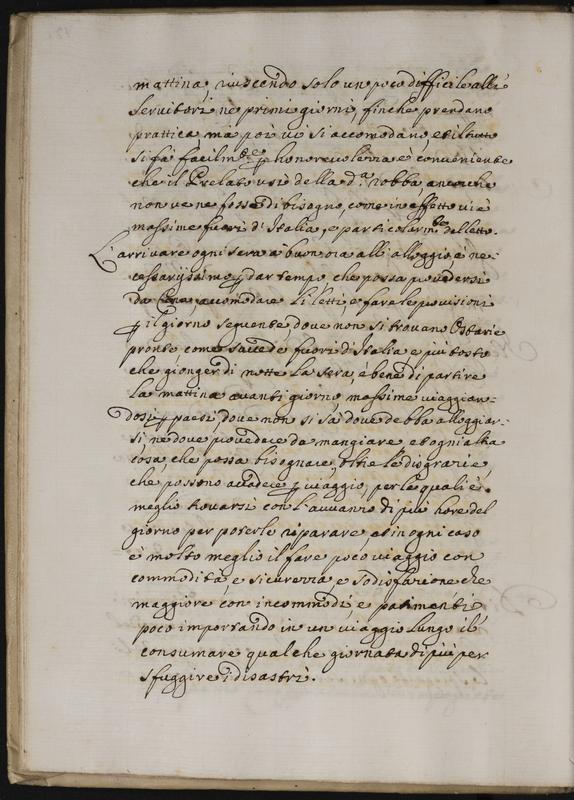 mattina, riuscendo solo un poco difficile alli
servitori ne primi giorni, finche prendano
prattica, mà poi vi si accomodano, et il tutto
si fà facilm.te e p honorevolezza è conveniente
che il Prelato usi della d.a robba, ancorche
non ve ne fosse di bisogno, come in effetto vi è
massime fuori d'Italia, e particolarm.te del letto.
L'arrivare ogni sera a buon'ora all'alloggio è ne-
cessaryssimo p dar tempo che possa provedersi
da Cena, accomodare li letti, e fare le provisioni
p il giorno seguente dove non si trovano Ostarie
pronte come succede fuori d'Italia e più tosto
che gionger di notte la sera, è bene di partire
la mattina avanti giorno, massime viaggian-
dosi p paesi, dove non si sà dove debba alloggiar-
si, ne dove provedere da mangiare, et ogni altra
cosa, che possa bisognare, oltre le disgrazie,
che possono accadere p viaggio, per le quali è
meglio trovarsi con l'avvanzo di più hore del
giorno per poterle riparare et in ogni caso
è molto meglio il fare poco viaggio con
commodità, e sicurezza, e sodisfazione che
maggiore con incommodi, e patimenti
poco importando in un viaggio lungo il
consumare qualche giornata di più per
sfuggire i disastri.